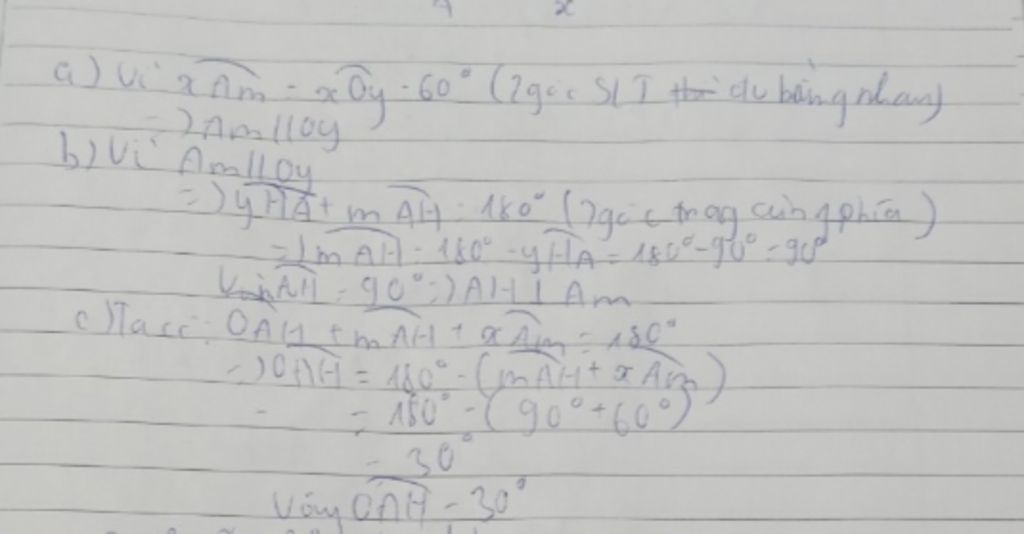 x
a) Vì xAm = xOy = 60° (2 góc SLT bằng nhau)
=> Am // Oy
b) Vì Am // Oy
=> yHA + mAH = 180° (2 góc trong cùng phía)
=> mAH = 180° - yHA = 180° - 90° = 90°
Vì mAH = 90° => AH ⊥ Am
c) Ta có: OAH + mAH + xAm = 180°
=> OAH = 180° - (mAH + xAm)
= 180° - (90° + 60°)
= 30°
Vậy OAH = 30°